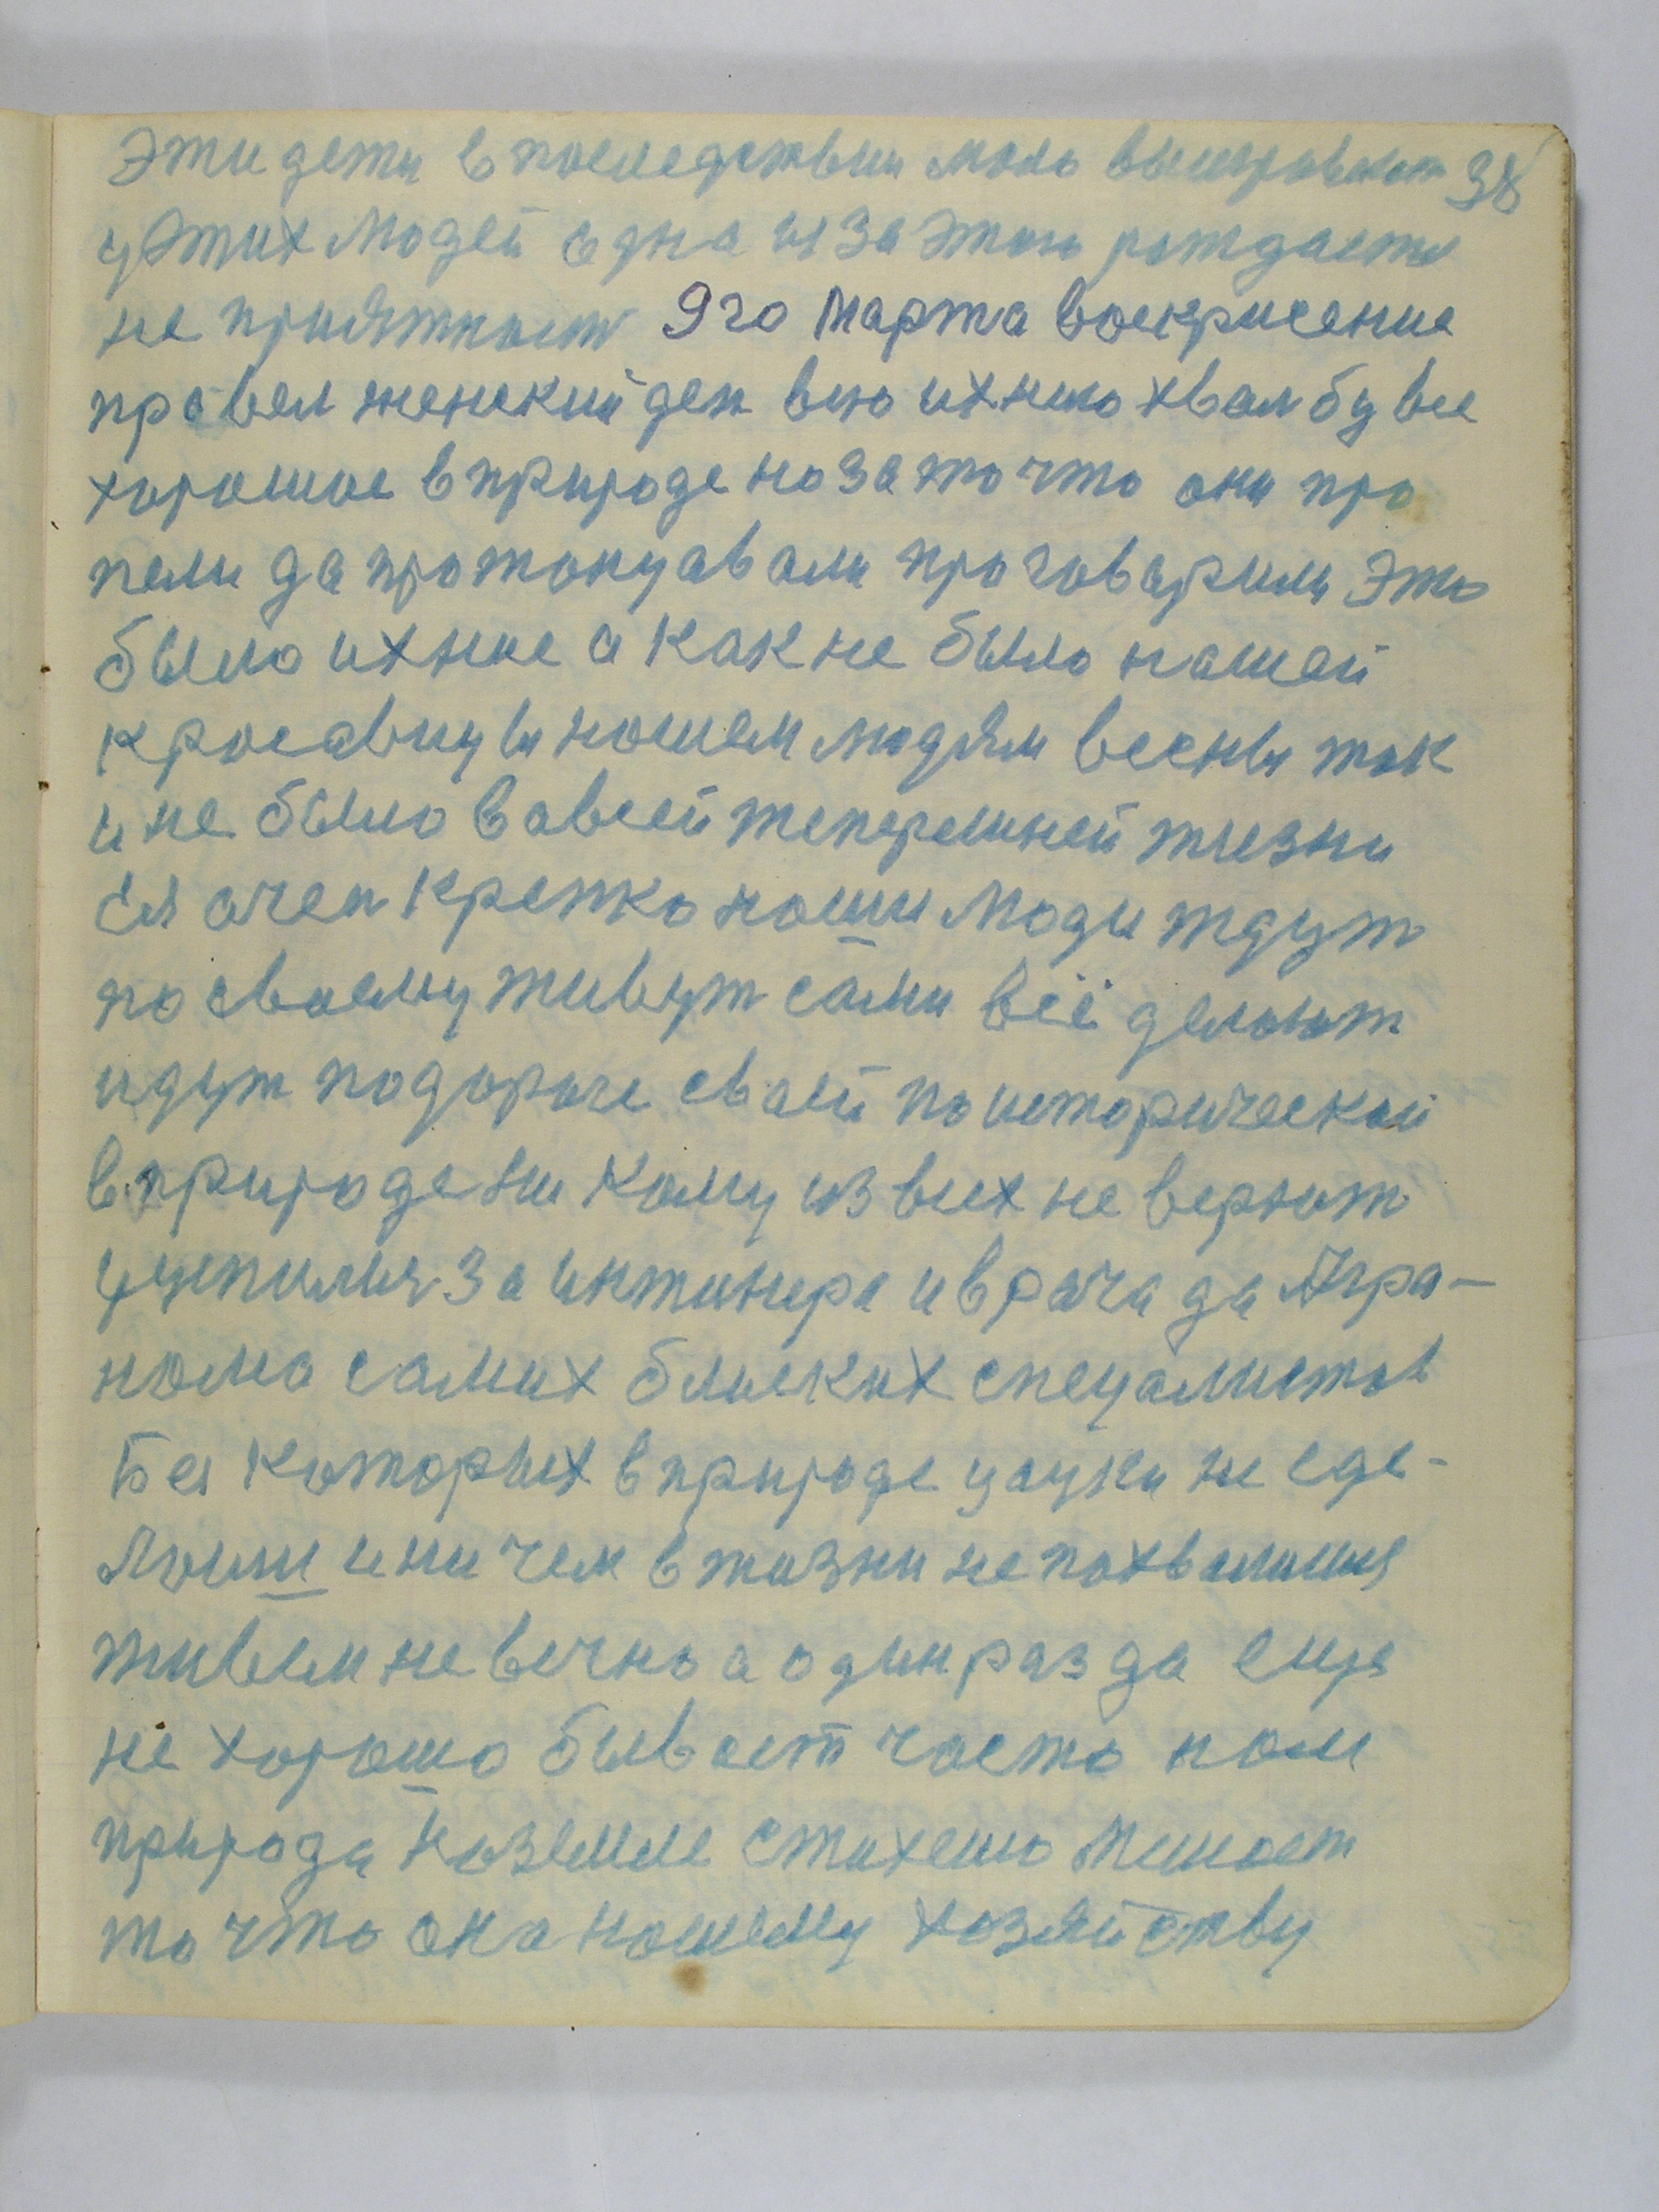 Эти дети в последствии мало выигравают 38
у этих людей одна изза этого рождается
не приятность 9го марта воскрисение
провел женский ден всю ихнюю хвалбу все
хорошое в природе но за то что они про
пели да протонцавали проговарили это
было ихние а как не было нашей
красавицы нашем людям весны так
и не было в овсей теперешней жизни
Ея очен крепко наши люди ждут
по своему живут сами всё делают
идут по дороге своей по исторической
в природе ни кому из всих не верют
уцепилися за инжинера и врача да Агра-
нома самих блиских спецалистов
Без которых в природе науки не сде-
лоиш и ни чем в жизни не похвалишся
живем не вечно а один раз да еще
не хорошо бывает часто нам
природа на земле стихею мешает
то что она нашему хозяйству